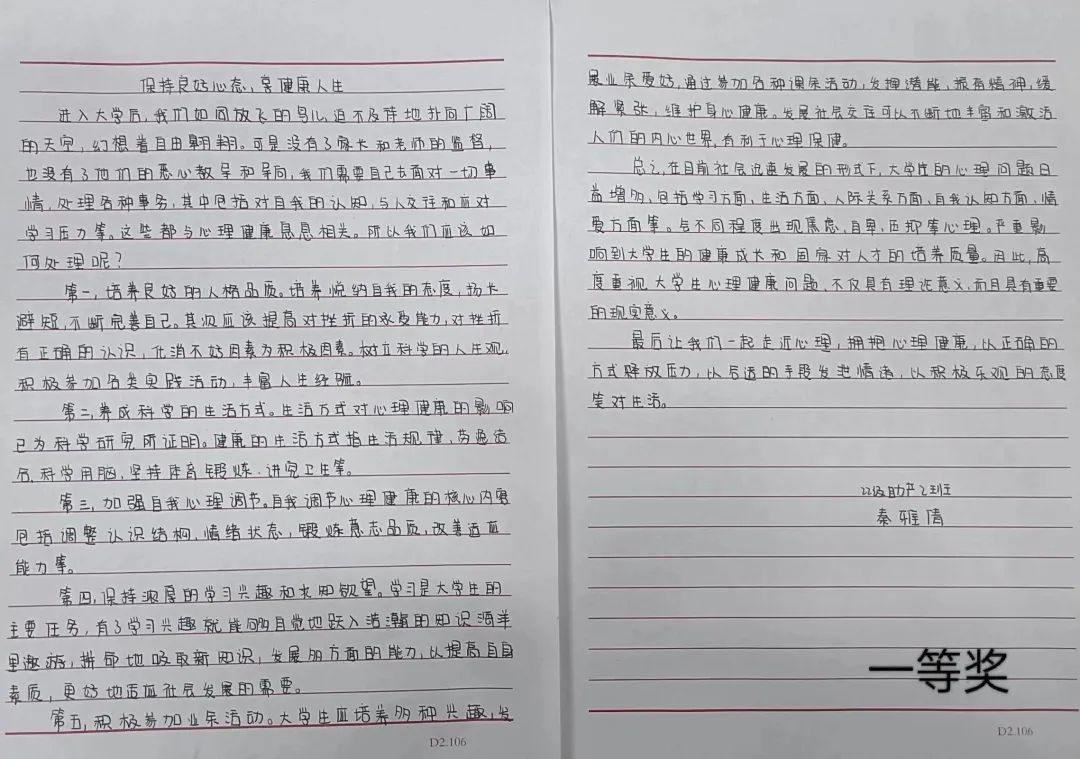 保持良好心态,享健康人生
进入大学后,我们如同放飞的鸟儿迫不及待地扑向广阔
的天空,幻想着自由翱翔。可是没有了家长和老师的监督,
也没有了他们的悉心教导和导向,我们需要自己去面对一切事
情,处理各种事务,其中包括对自我的认知,与人交往和应对
学习压力等。这些都与心理健康息息相关。所以我们应该如
何处理呢?
第一,培养良好的人格品质。培养悦纳自我的态度,扬长
避短,不断完善自己。其次应该提高对挫折的承受能力,对挫折
有正确的认识,化消不好因素为积极因素。树立科学的人生观,
积极参加各类实践活动,丰富人生经验。
第二,养成科学的生活方式。生活方式对心理健康的影响
已为科学研究所证明。健康的生活方式指生活规律,劳逸结
合,科学用脑,坚持体育锻炼,讲究卫生等。
第三,加强自我心理调节。自我调节心理健康的核心内容
包括调整认识结构,情绪状态,锻炼意志品质,改善适应
能力等。
第四,保持浓厚的学习兴趣和求知欲望。学习是大学生的
主要任务,有了学习兴趣就能够自觉地跃入浩瀚的知识海洋
里遨游,拼命地吸取新知识,发展多方面的能力,以提高自身
素质,更好地适应社会发展的需要。
第五,积极参加业余活动。大学生应培养多种兴趣,发
D2.106
展业余爱好,通过参加各种课余活动,发挥潜能,振奋精神,缓
解紧张,维护身心健康。发展社会交往可以不断地丰富和激活
人们的内心世界,有利于心理保健。
总之,在目前社会迅速发展的形式下,大学生的心理问题日
益增多,包括学习方面,生活方面,人际关系方面,自我认知方面,情
爱方面等。与不同程度出现焦虑,自卑,压抑等心理。严重影
响到大学生的健康成长和国家对人才的培养质量。因此,高
度重视大学生心理健康问题,不仅具有理论意义,而且具有重要
的现实意义。
最后让我们一起走近心理,拥抱心理健康,以正确的
方式释放压力,以合适的手段发泄情绪,以积极乐观的态度
笑对生活。
22级助产2班
秦雅倩
一等奖
D2.106